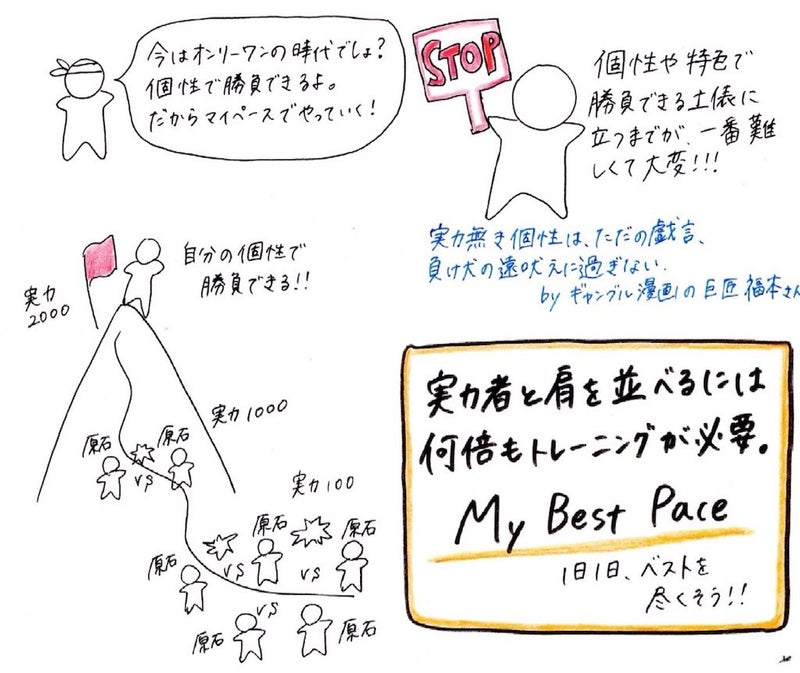 今はオンリーワンの時代でしょ?
個性で勝負できるよ。
だからマイペースでやっていく!
STOP
個性や特色で
勝負できる土俵に
立つまでが、一番難
しくて大変!!!
実力無き個性は、ただの戯言、
負け犬の遠吠えに過ぎない.
by ギャンブル漫画の巨匠 福本さん
自分の個性で
勝負できる!!
実力
2000
実力1000
原石
原石
vs
実力100
原石
原石
原石
vs
vs
vs
原石
原石
実力者と肩を並べるには
何倍もトレーニングが必要。
My Best Pace
1日1日、ベストを
尽くそう!!